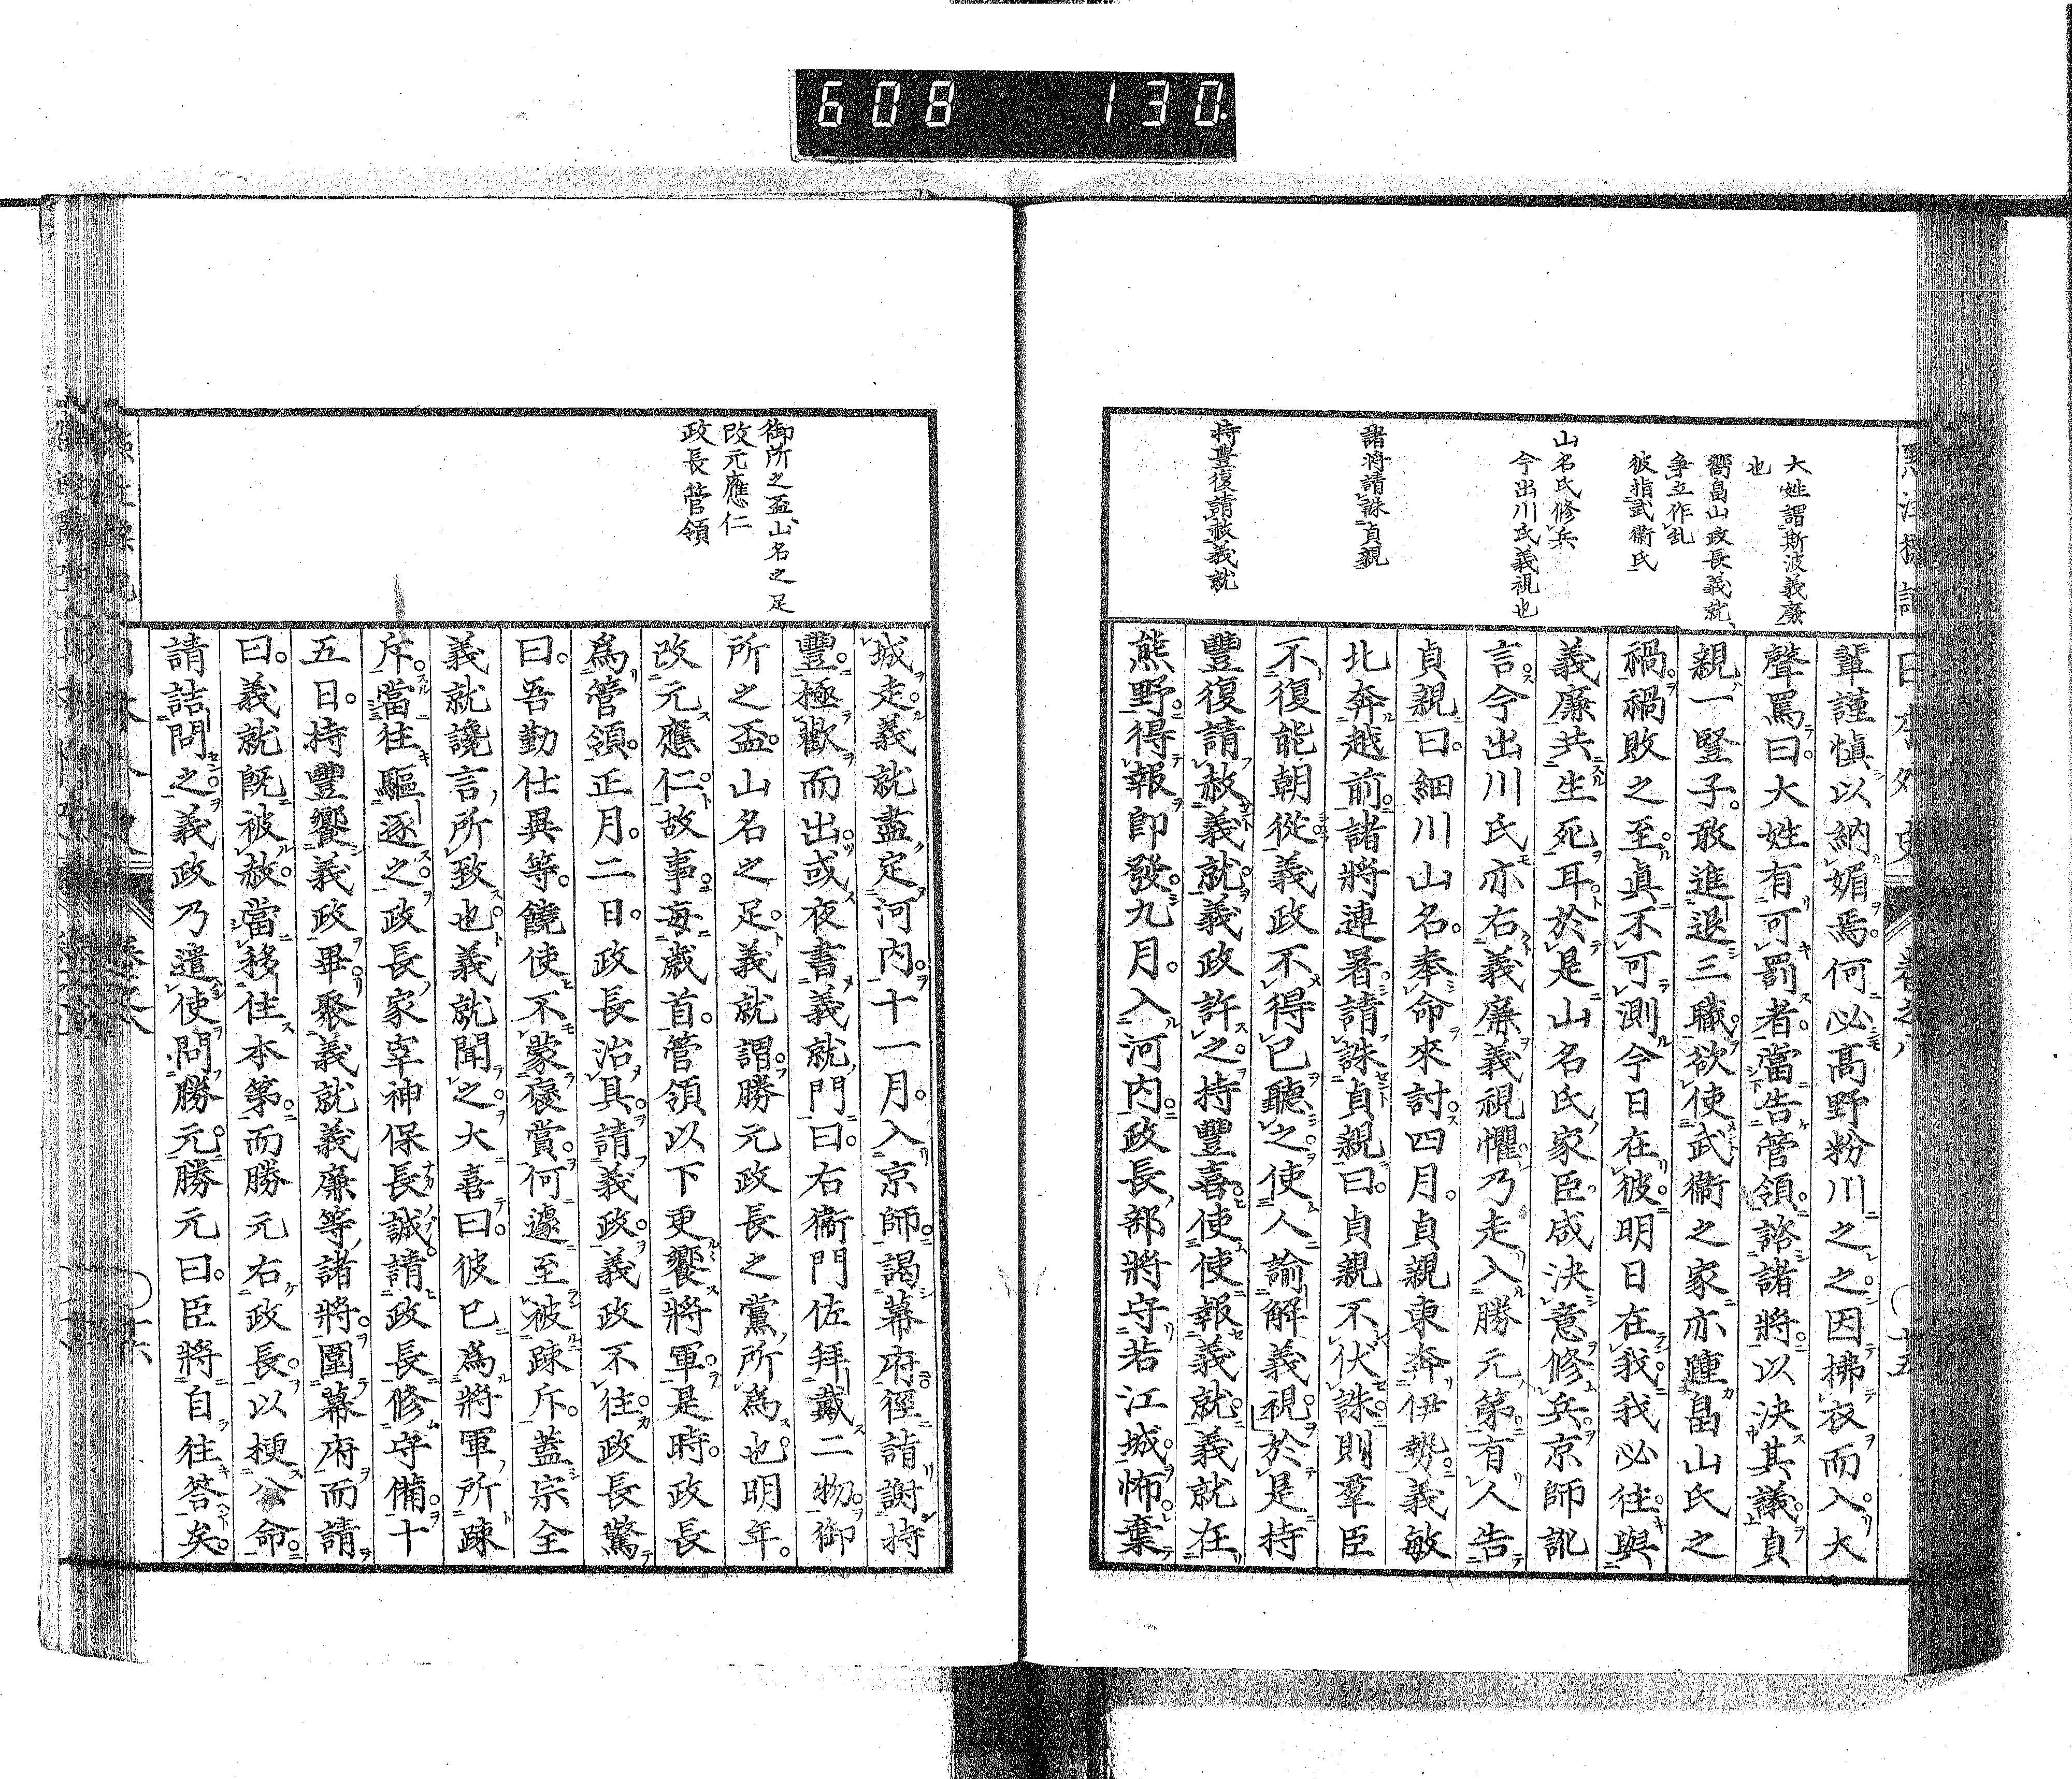 608 130
日本外史 卷之八 十五
大姓謂斯波義廉
也
嚮畠山政長義就、
爭立作乱
彼指武衞氏
山名氏修兵
今出川氏義視也
諸將請誅貞親
持豐復請赦義就
輩謹愼以納媚焉何必高野粉川之之因拂衣而入大
聲罵曰大姓有可罰者當告管領諮諸將以決其議貞
親一豎子敢進退三職欲使武衞之家亦踵畠山氏之
禍禍敗之至眞不可測今日在彼明日在我我必往與
義廉共生死耳於是山名氏家臣咸決意修兵京師訛
言今出川氏亦右義廉義視懼乃走入勝元第有人告
貞親曰細川山名奉命來討四月貞親東奔伊勢義敏
北奔越前諸將連署請誅貞親曰貞親不伏誅則羣臣
不復能朝從義政不得已聽之使人諭解義視於是持
豐復請赦義就義政許之持豐喜使使報義就義就在
熊野得報卽發九月入河内政長部將守若江城怖棄
御所之盃山名之足
改元應仁
政長管領
城走義就盡定河内十一月入京師謁幕府徑詣謝持
豐極歡而出或夜書義就門曰右衞門佐拜戴二物御
所之盃山名之足義就謂勝元政長之黨所爲也明年
改元應仁故事每歲首管領以下更饗將軍是時政長
爲管領正月二日政長治具請義政義政不往政長驚
曰吾勤仕異等饒使不蒙襃賞何遽至被疎斥蓋宗全
義就讒言所致也義就聞之大喜曰彼已爲將軍所疎
斥當往驅逐之政長家宰神保長誠請政長修守備十
五日持豐饗義政畢聚義就義廉等諸將圍幕府而請
曰義就旣被赦當移住本第而勝元右政長以梗公命
請詰問之義政乃遣使問勝元勝元曰臣將自往答矣